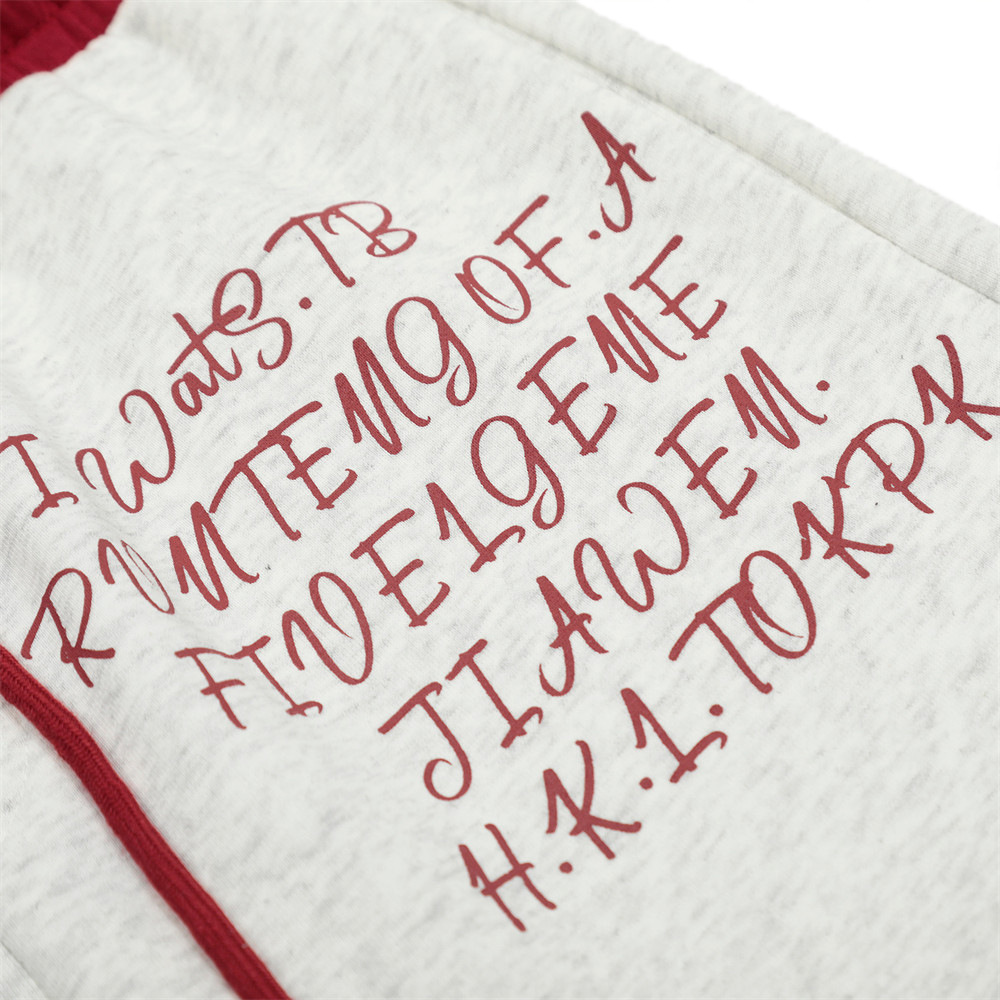 I WatS.TB
RVNTEMG OF.A
FIVE1GEME
JIAWEN.
H.K.1.TOKPK